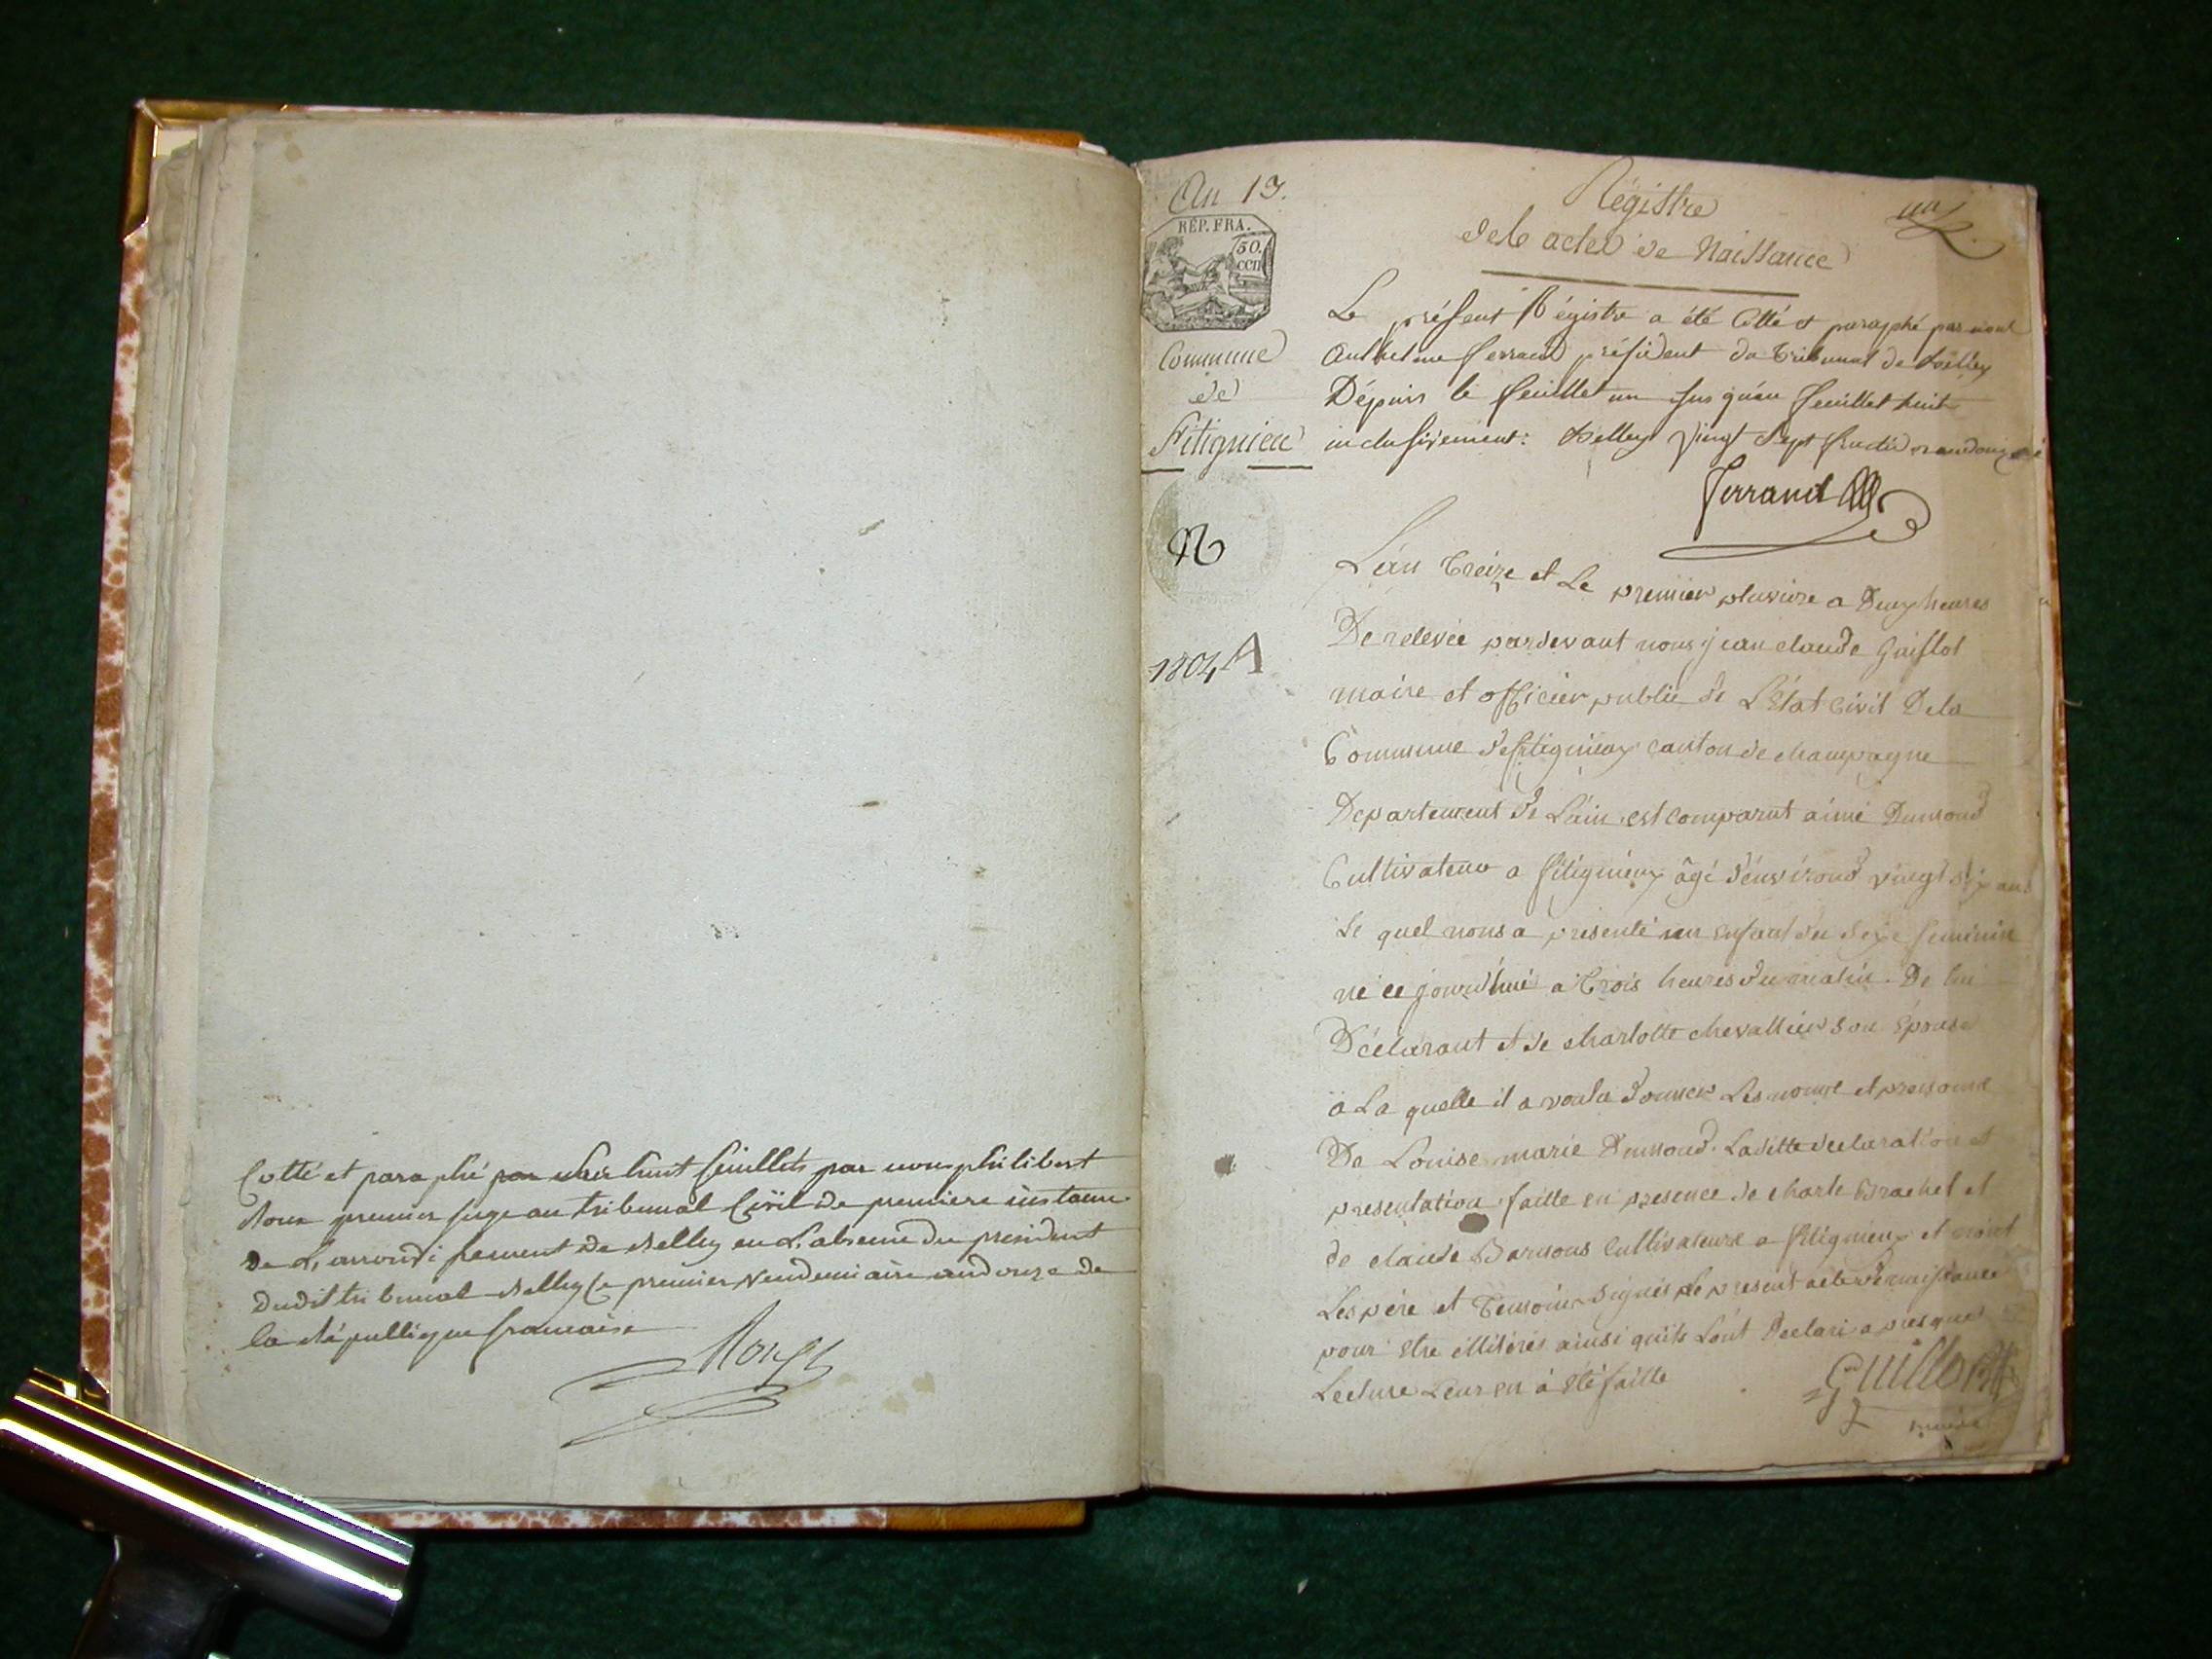 Cotté et paraphé huit feuillets par nous philibert
Roux premier juge au tribunal Civil de premiere instance
De L'arrondissement de Belley en L'absence du president
Dudit tribunal Belley Le premier vendemiaire an douze de
la République francaise
Roux
An 13.
RÉP. FRA.
50.
cen
Commune
de
Fitignieu
1804 A
Régistre
des actes de Naissance
un
Le présent Régistre a été Cotté et paraphé par nous
Anthelme ferrand président du Tribunal de Belley
Dépuis le feuillet un jusqu'au feuillet huit
inclusivement: Belley Vingt Sept fructidor an douze
Ferrand
L'an treize et Le premier pluviose a Deux heures
De relevée pardevant nous jean claude
maire et officier public de L'État Civil De la
Commune de fitignieux canton de champagne
Departement de L'ain est comparut aimé Dumond
Cultivateur a fitignieux âgé d'environd vingt ans
le quel nous a presenté un enfant du sexe feminin
né ce jourd'hui a trois heures du matin. De lui
Déclarant et de charlotte chevallier son Épouse
a La quelle il a voulu donner Les noms et prenoms
De Louise marie Dumond. Laditte declaration et
presentation faitte en presence de charle Brachet et
de claude cultivateurs a fitignieux et n'ont
Les père et temoins signés le present acte de naissance
pour etre illiterés ainsi qu'ils L'ont Declaré apres que
Lecture Leur en à été faitte
maire